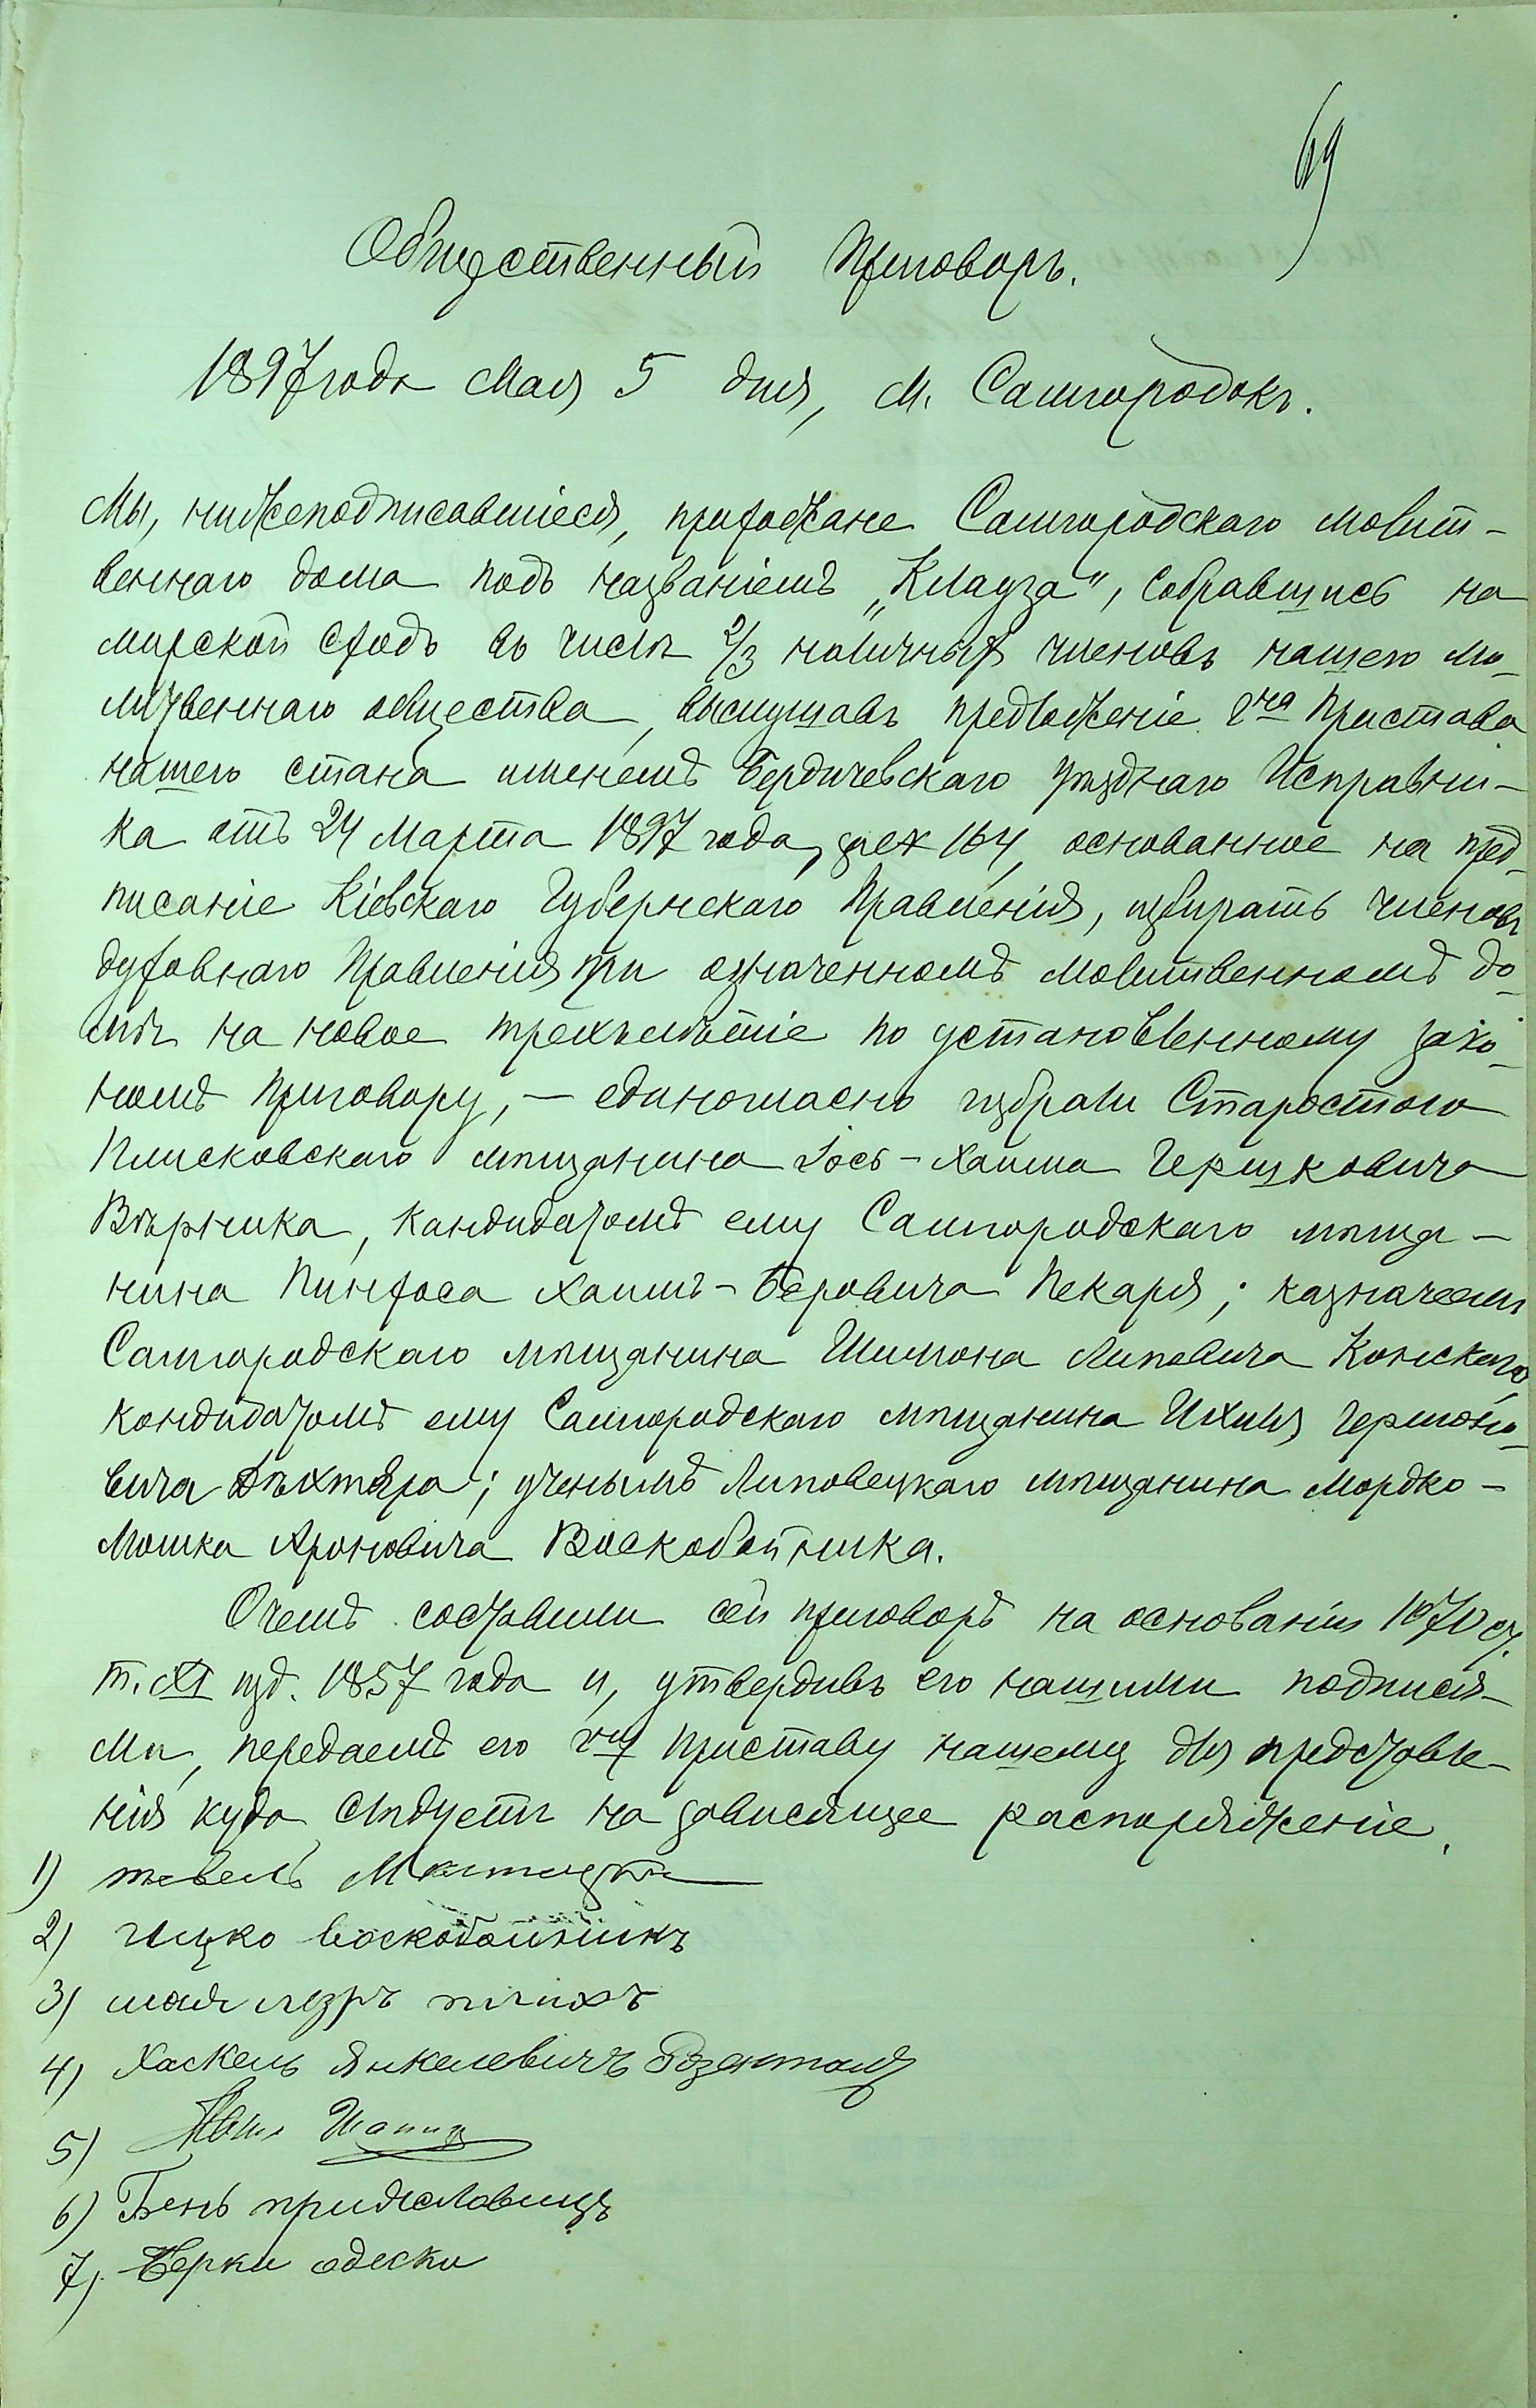 69
Общественный Приговоръ.
1897 года Мая 5 дня, м. Самгородокъ.
Мы, нижеподписавшіеся, прихожане Самгородскаго молит-
веннаго дома подъ названіемъ „Клауза“, собравшись на
мирской сходъ въ числѣ 2/3 наличныхъ членовъ нашего мо-
литвеннаго общества, выслушавъ предложеніе гна Пристава
нашего стана именемъ Бердичевскаго уѣзднаго Исправни-
ка отъ 24 Марта 1897 года, за № 164, основанное на пред-
писаніе Кіевскаго Губернскаго Правленія, избирать членовъ
духовнаго Правленія при означенномъ молитвенномъ до-
мѣ на новое трехълѣтіе по установленному зако-
номъ приговору, — единогласно избрали Старостою
Плисковскаго мѣщанина Іось-Хаима Гершковича
Вѣрника, кандидатомъ ему Самгородскаго мѣща-
нина Пинхаса Хаимъ-Беровича Пекаря; казначеемъ
Самгородскаго мѣщанина Шимона Липовича Конскаго,
кандидатомъ ему Самгородскаго мѣщанина Ихиля Гершко-
вича Дѣхтяра; ученымъ Липовецкаго мѣщанина Мордко-
Мошка Ароновича Воскобойника.
Очемъ составили сей приговоръ на основаніи 1070 ст.
т. XI изд. 1857 года и, утвердивъ его нашими подпися-
ми, передаемъ его гну Приставу нашему для представле-
нія куда слѣдуетъ на зависящее распоряженіе.
1) тевель
2) Ицко воскобойникъ
3) шая лезръ
4) Хаскель Янкелевичъ Розенталь
5)
6) Бень
7) Берко одески